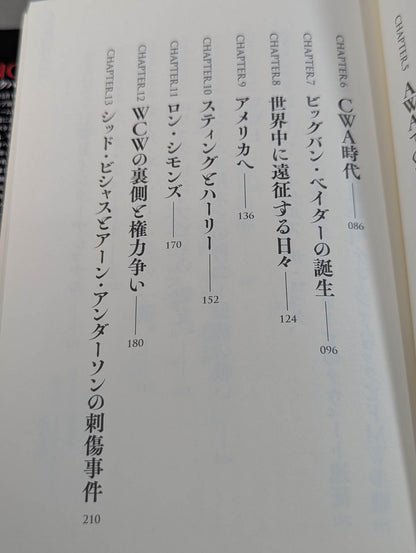 CHAPTER.5
CHAPTER.6 CWA時代 086
CHAPTER.7 ビッグバン・ベイダーの誕生 096
CHAPTER.8 世界中に遠征する日々 124
CHAPTER.9 アメリカへ 136
CHAPTER.10 スティングとハーリー 152
CHAPTER.11 ロン・シモンズ 170
CHAPTER.12 WCWの裏側と権力争い 180
CHAPTER.13 シッド・ビシャスとアーン・アンダーソンの刺傷事件 210